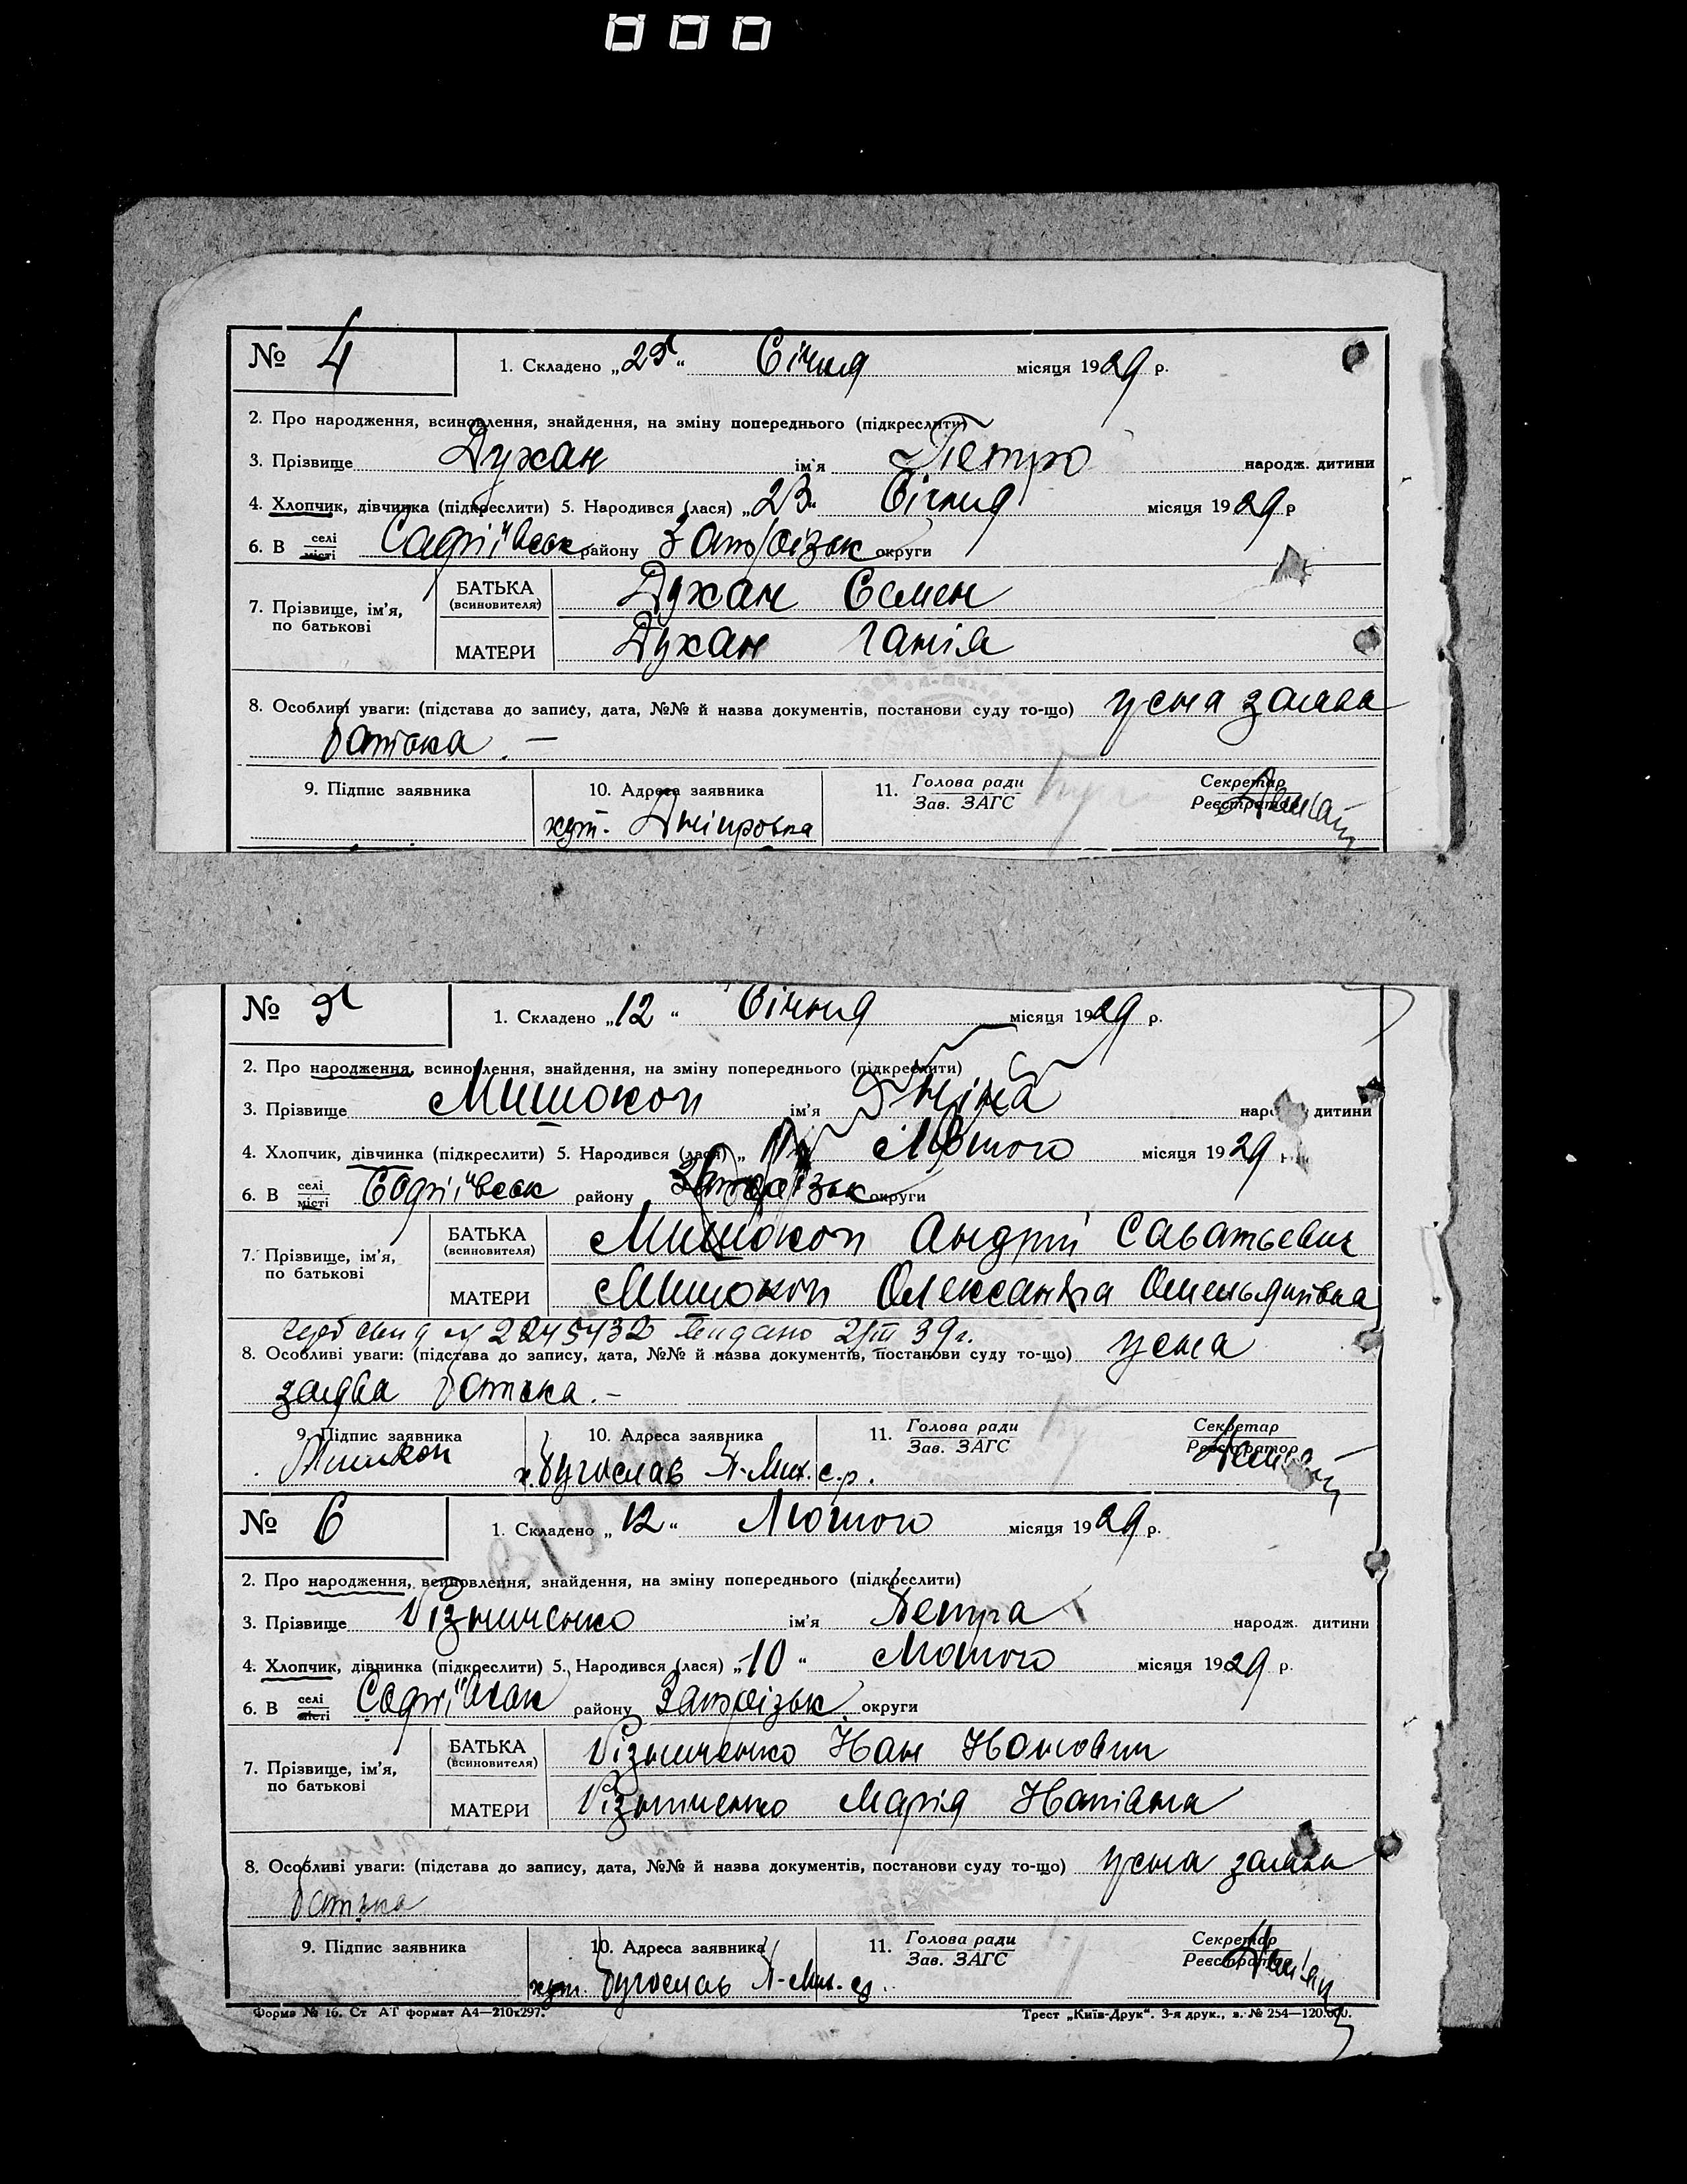 № 4 1. Складено „25“ Січня місяця 1929 р.
2. Про народження, всиновлення, знайдення, на зміну попереднього (підкреслити)
3. Прізвище Духан ім'я Петро народж. дитини
4. Хлопчик, дівчинка (підкреслити) 5. Народився (лася) „23“ Січня місяця 1929 р
6. В селі місті Софіївськ району Запорізьк округи
7. Прізвище, ім'я, по батькові БАТЬКА (всиновителя) Духан Семен
МАТЕРИ Духан Ганія
8. Особливі уваги: (підстава до запису, дата, №№ й назва документів, постанови суду то-що) усна заява
батька. —
9. Підпис заявника 10. Адреса заявника 11. Голова ради Зав. ЗАГС Секретар Реєстратор
хут. Дніпровка
№ 5 1. Складено „12“ Січня місяця 1929 р.
2. Про народження, всиновлення, знайдення, на зміну попереднього (підкреслити)
3. Прізвище Мишокоп ім'я народж. дитини
4. Хлопчик, дівчинка (підкреслити) 5. Народився (лася) „ Лютого місяця 1929
6. В селі місті Софіївськ району Запорізьк округи
7. Прізвище, ім'я, по батькові БАТЬКА (всиновителя) Мишокоп Андрій Саватьевич
МАТЕРИ Мишокоп Олександра Омельянівна
№ 2245432 видано 2/III 39 г.
8. Особливі уваги: (підстава до запису, дата, №№ й назва документів, постанови суду то-що) усна
заява батька. —
9. Підпис заявника 10. Адреса заявника 11. Голова ради Зав. ЗАГС Секретар Реєстратор
х. Бугослав П-Мих. с.р.
№ 6 1. Складено „12“ Лютого місяця 1929 р.
2. Про народження, всиновлення, знайдення, на зміну попереднього (підкреслити)
3. Прізвище Візниченко ім'я Петра народж. дитини
4. Хлопчик, дівчинка (підкреслити) 5. Народився (лася) „10“ Лютого місяця 1929 р.
6. В селі місті Софіївськ району Запорізьк округи
7. Прізвище, ім'я, по батькові БАТЬКА (всиновителя) Візниченко
МАТЕРИ Візниченко Марія
8. Особливі уваги: (підстава до запису, дата, №№ й назва документів, постанови суду то-що) усна заява
батька
9. Підпис заявника 10. Адреса заявника 11. Голова ради Зав. ЗАГС Секретар Реєстратор
хут. Бугослав П-Мих.
Форма № 16. Ст АТ формат А4—210х297. Трест „Київ-Друк“. 3-я друк., в. № 254—120.000.